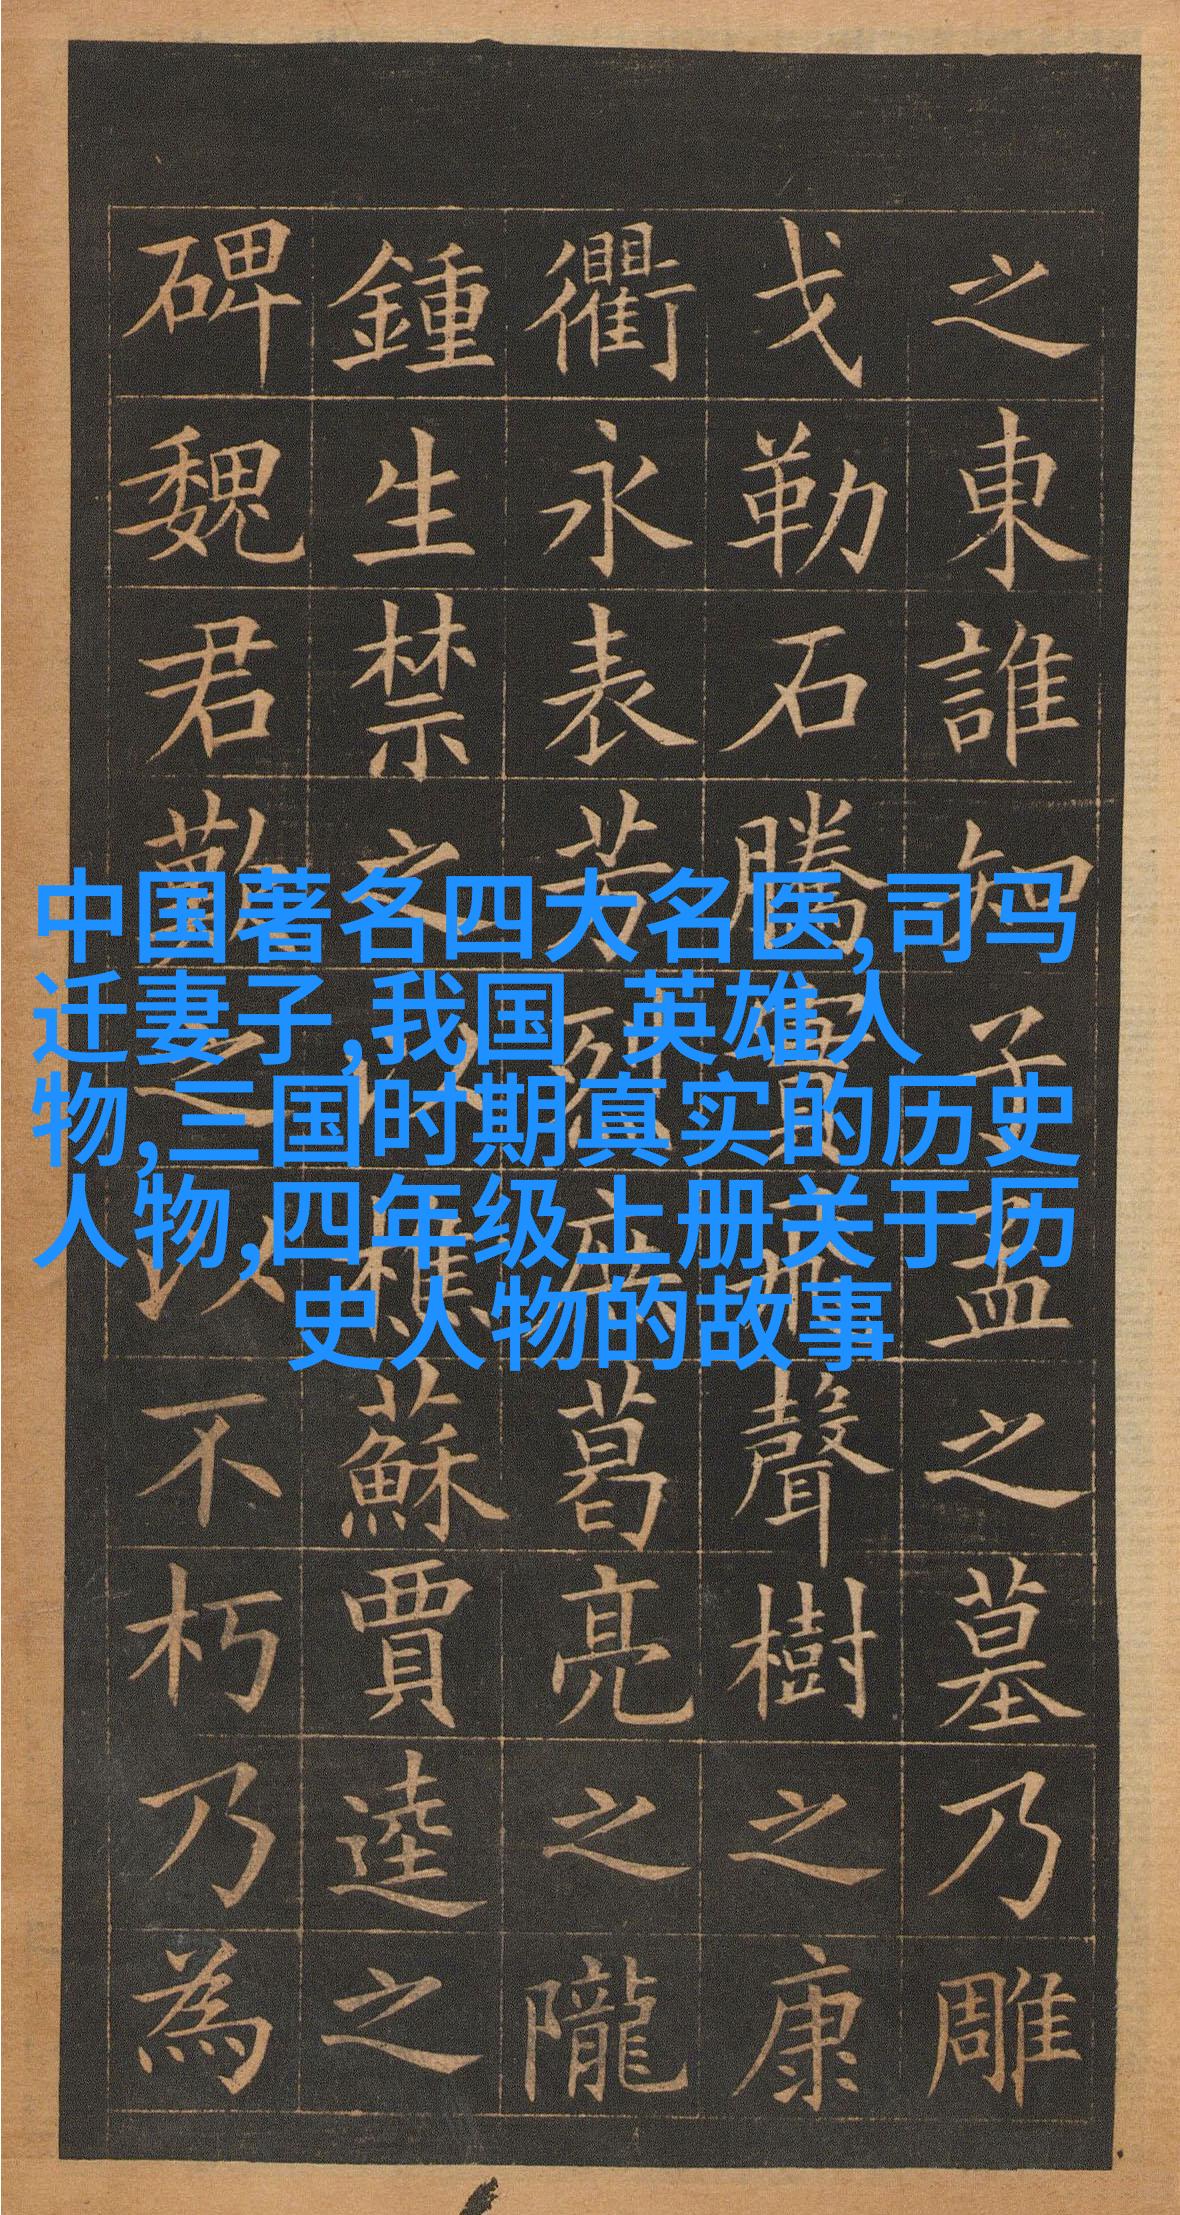 中国著名四大名医,司马
迁妻子,我国 英雄人
物,三国时期真实的历史
人物,四年级上册关于历
史人物的故事
之東誰知子孟之墓乃雕
戈勒石騰實飛聲樹之康
衢永表芳烈庶葛亮之隴
鍾生禁之以樵蘇賈逵之
碑魏君勤之以不朽乃為